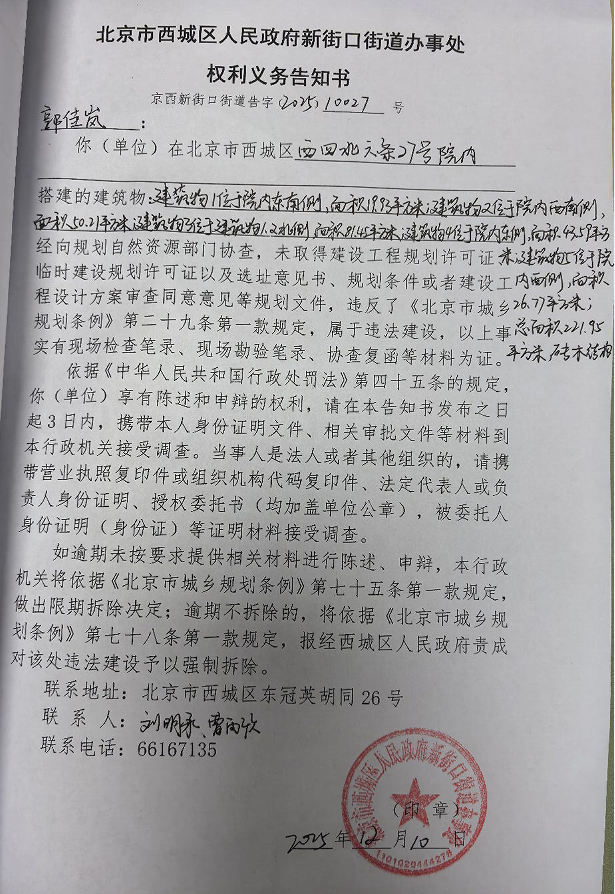 北京市西城区人民政府新街口街道办事处
权利义务告知书
京西新街口街道告字〔2025〕10027 号
郭佳岚：
你（单位）在北京市西城区西四北六条27号院内
搭建的建筑物：建筑物1位于院内东南侧，面积 平方米；建筑物2位于院内西南侧，
面积50.21平方米；建筑物3位于建筑物1、2北侧，面积 平方米；建筑物4位于院内东侧，面积43.57平方
米；建筑物5位于院
内西侧，面积
26.77平方米；
总面积221.95
平方米，砖木结构
经向规划自然资源部门协查，未取得建设工程规划许可证、
临时建设规划许可证以及选址意见书、规划条件或者建设工
程设计方案审查同意意见等规划文件，违反了《北京市城乡
规划条例》第二十九条第一款规定，属于违法建设，以上事
实有现场检查笔录、现场勘验笔录、协查复函等材料为证。
依据《中华人民共和国行政处罚法》第四十五条的规定，
你（单位）享有陈述和申辩的权利，请在本告知书发布之日
起3日内，携带本人身份证明文件、相关审批文件等材料到
本行政机关接受调查。当事人是法人或者其他组织的，请携
带营业执照复印件或组织机构代码复印件、法定代表人或负
责人身份证明、授权委托书（均加盖单位公章），被委托人
身份证明（身份证）等证明材料接受调查。
如逾期未按要求提供相关材料进行陈述、申辩，本行政
机关将依据《北京市城乡规划条例》第七十五条第一款规定，
做出限期拆除决定；逾期不拆除的，将依据《北京市城乡规
划条例》第七十八条第一款规定，报经西城区人民政府责成
对该处违法建设予以强制拆除。
联系地址：北京市西城区东冠英胡同26号
联 系 人：刘明 、曹雨欣
联系电话：66167135
北京市西城区人民政府新街口街道办事处
（印 章）
2025年12月10日
1101020444278